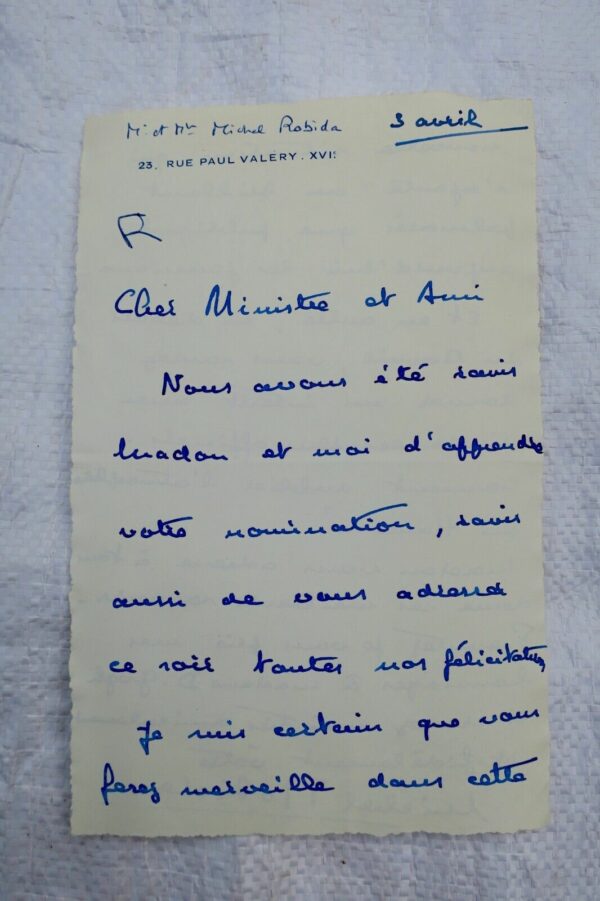 Mr et Me Michel Robida
3 avril
23, RUE PAUL VALERY. XVIE
R
Cher Ministre et Ami
Nous avons été ravis
Madou et moi d'apprendre
votre nomination, ravis
aussi de vous adresser
ce soir toutes nos félicitations
Je suis certain que vous
ferez merveille dans cette